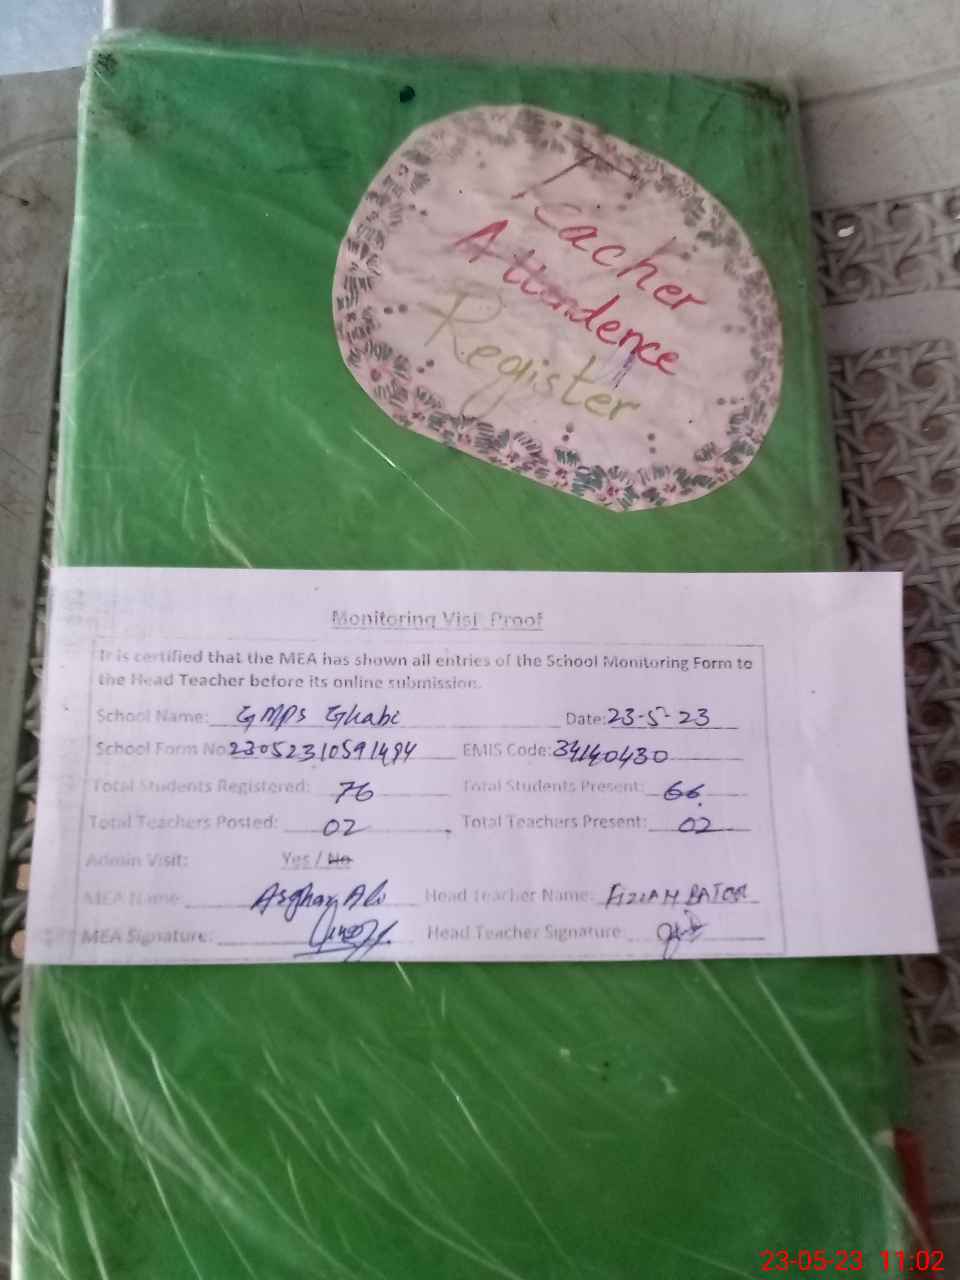 Teacher
Attendence
Register
Monitoring Visit Proof
It is certified that the MEA has shown all entries of the School Monitoring Form to
the Head Teacher before its online submission.
School Name: GMPS Ghabi Date: 23-5-23
School Form No 23052310591494 EMIS Code: 34140430
Total Students Registered: 76 Total Students Present: 66
Total Teachers Posted: 02 Total Teachers Present: 02
Admin Visit: Yes / No
MEA Name: Asghar Ali Head Teacher Name:
MEA Signature: Head Teacher Signature
23-05-23 11:02